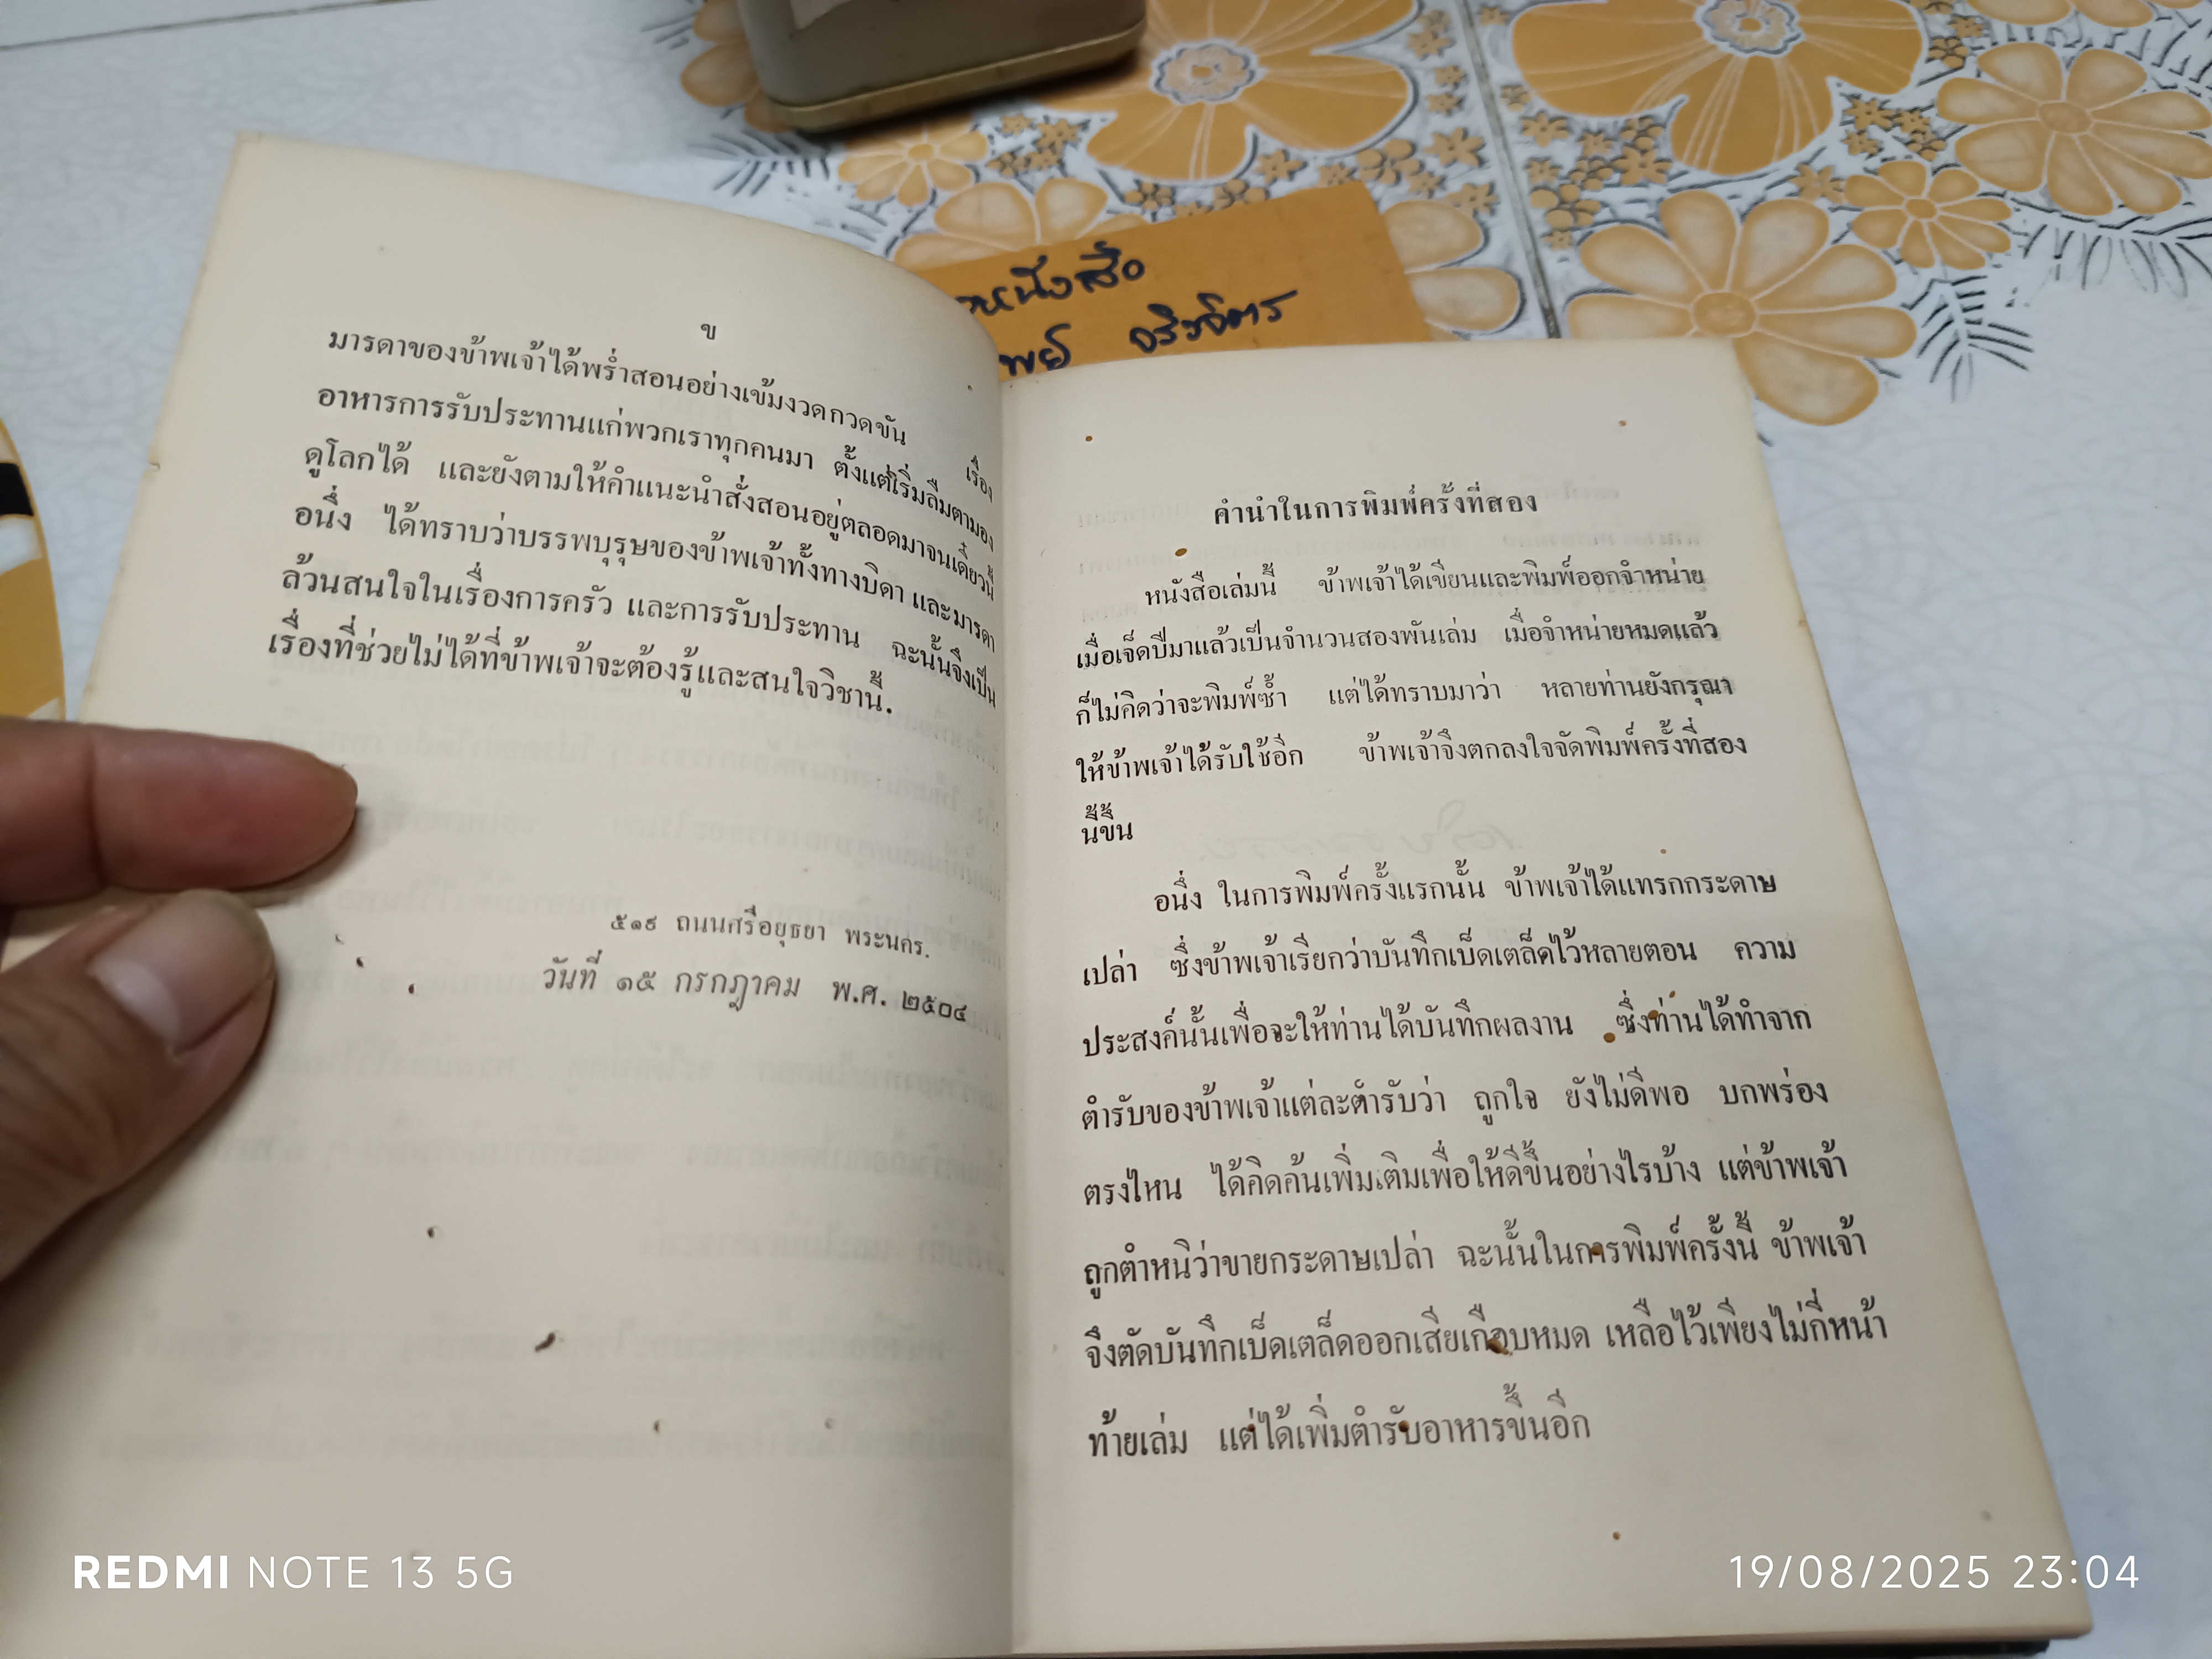 หนังสือ
พย์ จริงจิตร
ข
มารดาของข้าพเจ้าได้พร่ำสอนอย่างเข้มงวดกวดขัน เรื่อง
อาหารการรับประทานแก่พวกเราทุกคนมา ตั้งแต่เริ่มลืมตามอง
ดูโลกได้ และยังตามให้คำแนะนำสั่งสอนอยู่ตลอดมาจนเดี๋ยวนี้
อนึ่ง ได้ทราบว่าบรรพบุรุษของข้าพเจ้าทั้งทางบิดา และมารดา
ล้วนสนใจในเรื่องการครัว และการรับประทาน ฉะนั้นจึงเป็น
เรื่องที่ช่วยไม่ได้ที่ข้าพเจ้าจะต้องรู้และสนใจวิชานี้.
๕๑๙ ถนนศรีอยุธยา พระนคร.
วันที่ ๑๕ กรกฎาคม พ.ศ. ๒๕๐๔
คำนำในการพิมพ์ครั้งที่สอง
หนังสือเล่มนี้ ข้าพเจ้าได้เขียนและพิมพ์ออกจำหน่าย
เมื่อเจ็ดปีมาแล้วเป็นจำนวนสองพันเล่ม เมื่อจำหน่ายหมดแล้ว
ก็ไม่คิดว่าจะพิมพ์ซ้ำ แต่ได้ทราบมาว่า หลายท่านยังกรุณา
ให้ข้าพเจ้าได้รับใช้อีก ข้าพเจ้าจึงตกลงใจจัดพิมพ์ครั้งที่สอง
นี้ขึ้น
อนึ่ง ในการพิมพ์ครั้งแรกนั้น ข้าพเจ้าได้แทรกกระดาษ
เปล่า ซึ่งข้าพเจ้าเรียกว่าบันทึกเบ็ดเตล็ดไว้หลายตอน ความ
ประสงค์นั้นเพื่อจะให้ท่านได้บันทึกผลงาน ซึ่งท่านได้ทำจาก
ตำรับของข้าพเจ้าแต่ละตำรับว่า ถูกใจ ยังไม่ดีพอ บกพร่อง
ตรงไหน ได้คิดค้นเพิ่มเติมเพื่อให้ดีขึ้นอย่างไรบ้าง แต่ข้าพเจ้า
ถูกตำหนิว่าขายกระดาษเปล่า ฉะนั้นในการพิมพ์ครั้งนี้ ข้าพเจ้า
จึงตัดบันทึกเบ็ดเตล็ดออกเสียเกือบหมด เหลือไว้เพียงไม่กี่หน้า
ท้ายเล่ม แต่ได้เพิ่มตำรับอาหารขึ้นอีก
REDMI NOTE 13 5G
19/08/2025 23:04